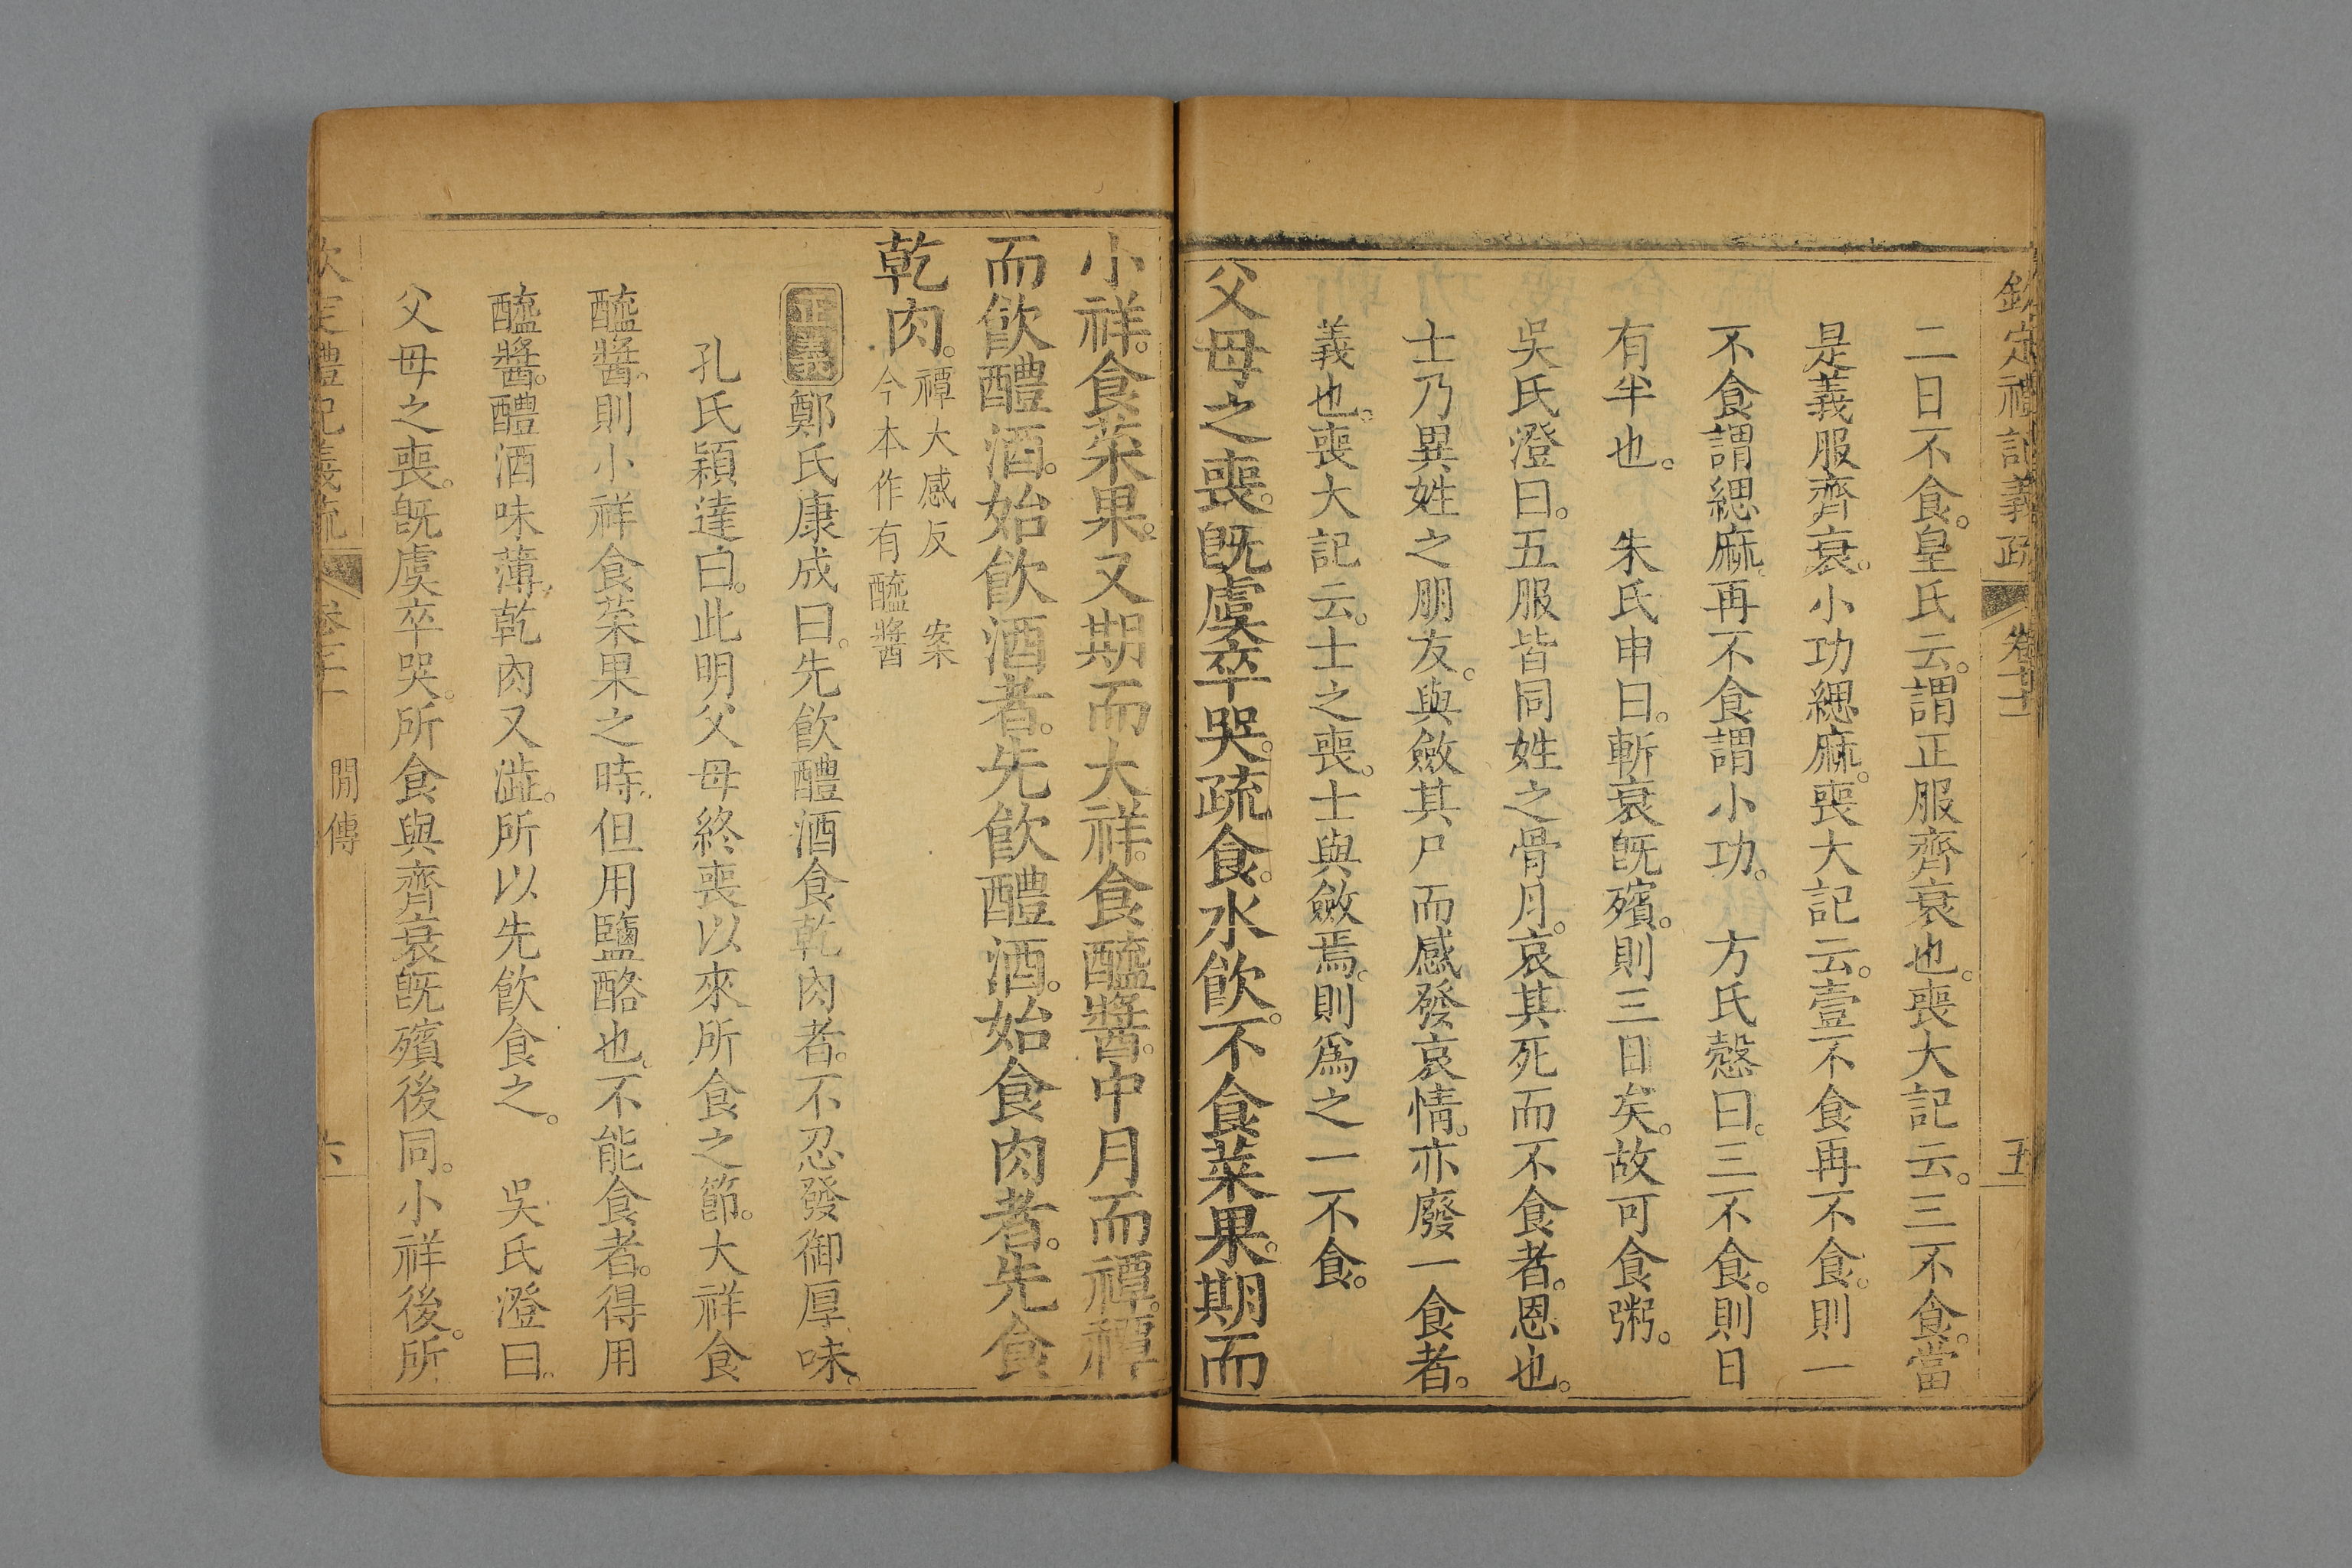 欽定禮記義疏 卷 五
二日不食。皇氏云。謂正服齊衰也。喪大記云。三不食。當
是義服齊衰。小功緦麻。喪大記云。壹不食再不食。則一
不食謂緦麻。再不食謂小功。 方氏慤曰。三不食。則日
有半也。 朱氏申曰。斬衰旣殯。則三日矣。故可食粥。
吳氏澄曰。五服皆同姓之骨月。哀其死而不食者。恩也。
士乃異姓之朋友。與斂其尸而感發哀情。亦廢一食者。
義也。喪大記云。士之喪。士與斂焉。則爲之一不食。
父母之喪。旣虞卒哭。疏食。水飮。不食菜果。期而
小祥。食菜果。又期而大祥。食醯醬。中月而禫。禫
而飮醴酒。始飮酒者。先飮醴酒。始食肉者。先食
乾肉。禫大感反 案
今本作有醯醬
正義 鄭氏康成曰。先飮醴酒食乾肉者。不忍發御厚味。
孔氏穎達曰。此明父母終喪以來所食之節。大祥食
醯醬。則小祥食菜果之時。但用鹽酪也。不能食者。得用
醯醬。醴酒味薄。乾肉又澁。所以先飮食之。 吳氏澄曰。
父母之喪。旣虞卒哭。所食與齊衰旣殯後同。小祥後。所
禮記義疏 閒傳 六